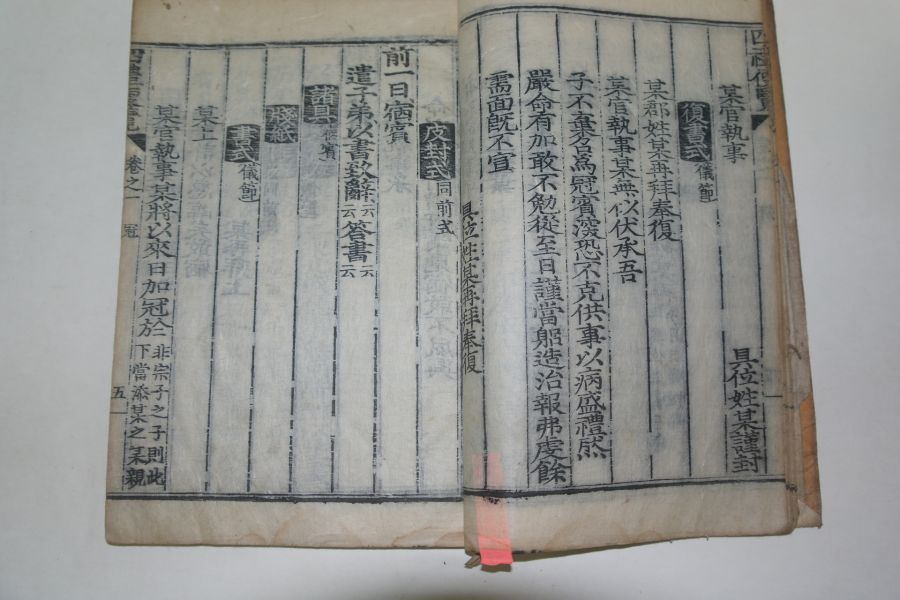 某官執事
具位姓某謹封
復書式 儀節
某郡姓某再拜奉復
某官執事某無以伏承吾
子不棄召爲冠賓深恐不克供事以病盛禮然
嚴命有加敢不勉從至日謹當躬造治報弗虔餘
需面旣不宣
具位姓某再拜奉復
皮封式 同前式
前一日宿賓
遣子弟以書致辭云云答書云云
諸具 宿賓
牋紙
書式 儀節
某上
某官執事某將以來日加冠於 非宗子之子則此
下當添某之某親
卷之一 冠 五